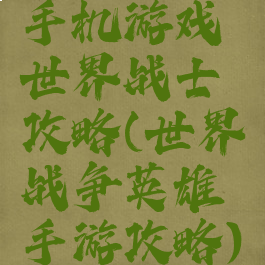 手机游戏
世界战士
攻略(世界
战争英雄
手游攻略)